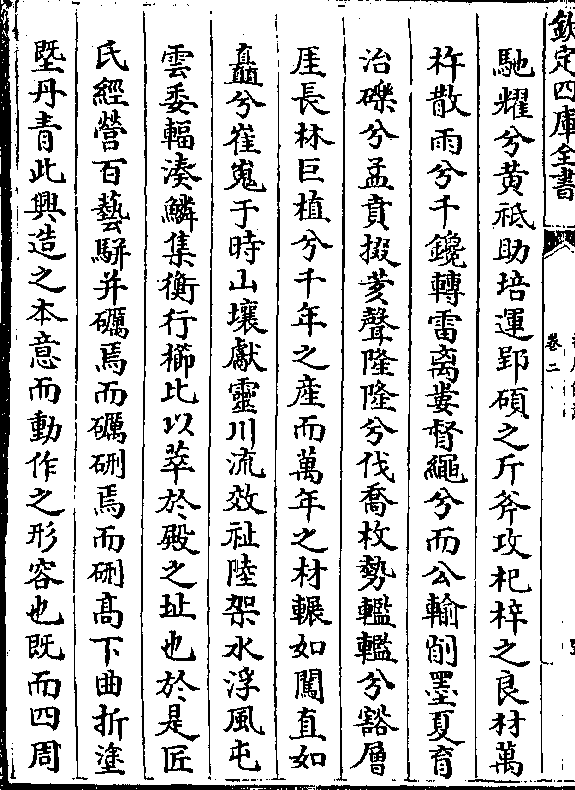 欽定四庫全書
卷二
馳耀兮黄祗助培運郢碩之斤斧攻杞梓之良材萬
杵散雨兮千鑱轉雷离婁督繩兮而公輸削墨夏育
治礫兮孟賁掇菱聲隆隆兮伐喬枚勢轞轞兮豁層
厓長林巨植兮千年之産而萬年之材輾如闖直如
矗兮崔嵬于時山壤獻靈川流效祉陸架水浮風屯
雲委輻湊鱗集衡行櫛比以萃於殿之址也於是匠
氏經營百藝駢并礪焉而礪硎焉而硎髙下曲折塗
塈丹青此興造之本意而動作之形容也既而四周